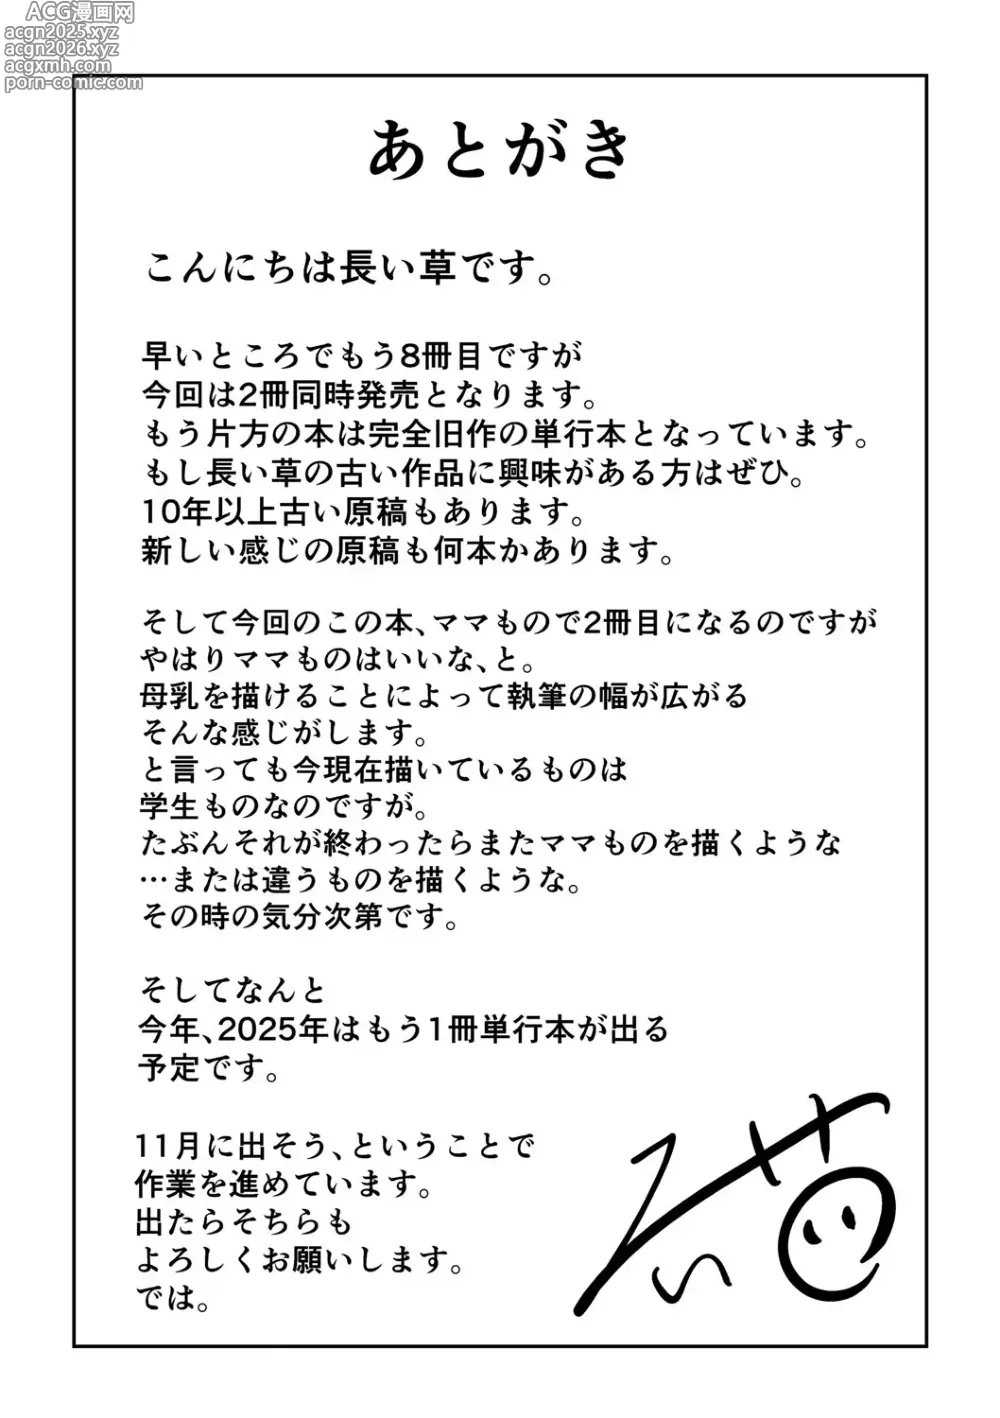 ACG漫画网
acgn2025.xyz
acgn2026.xyz
acgxmh.com
porn-comic.com
あとがき
こんにちは長い草です。
早いところでもう8冊目ですが
今回は2冊同時発売となります。
もう片方の本は完全旧作の単行本となっています。
もし長い草の古い作品に興味がある方はぜひ。
10年以上古い原稿もあります。
新しい感じの原稿も何本かあります。
そして今回のこの本、ママもので2冊目になるのですが
やはりママものはいいな、と。
母乳を描けることによって執筆の幅が広がる
そんな感じがします。
と言っても今現在描いているものは
学生ものなのですが。
たぶんそれが終わったらまたママものを描くような
…または違うものを描くような。
その時の気分次第です。
そしてなんと
今年、2025年はもう1冊単行本が出る
予定です。
11月に出そう、ということで
作業を進めています。
出たらそちらも
よろしくお願いします。
では。